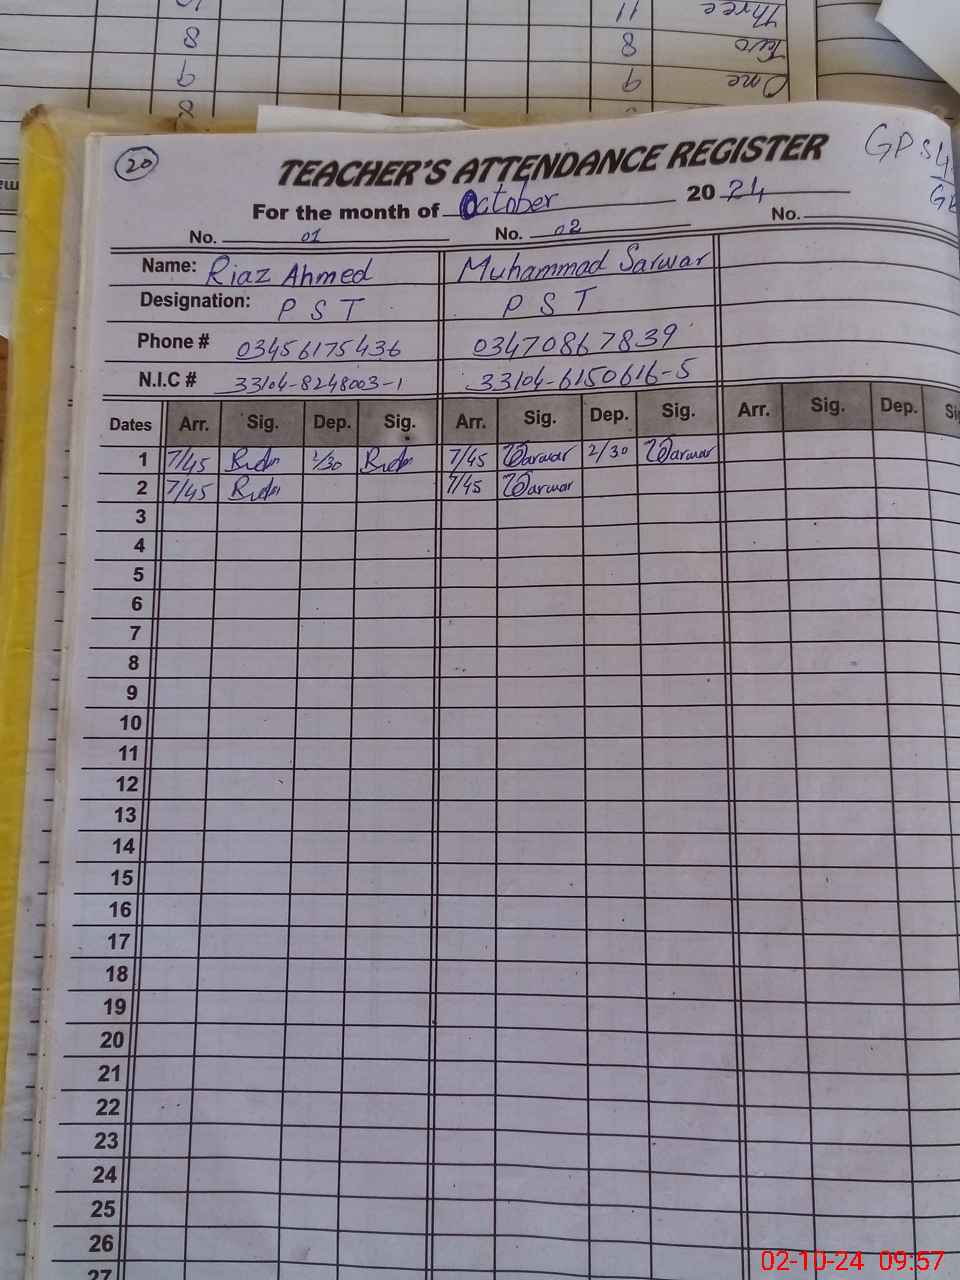 Three 11
Two 8 8
One 9 9
20
TEACHER'S ATTENDANCE REGISTER
GPS
For the month of October 2024
No. 01 No. 02 No.
Name: Riaz Ahmed Muhammad Sarwar
Designation: P S T P S T
Phone # 03456175436 03470867839
N.I.C # 33104-8248003-1 33104-6150616-5
Dates Arr. Sig. Dep. Sig. Arr. Sig. Dep. Sig. Arr. Sig. Dep.
1 7/45 2/30 7/45 Sarwar 2/30 Sarwar
2 7/45 7/45 Sarwar
3
4
5
6
7
8
9
10
11
12
13
14
15
16
17
18
19
20
21
22
23
24
25
26
27
02-10-24 09:57